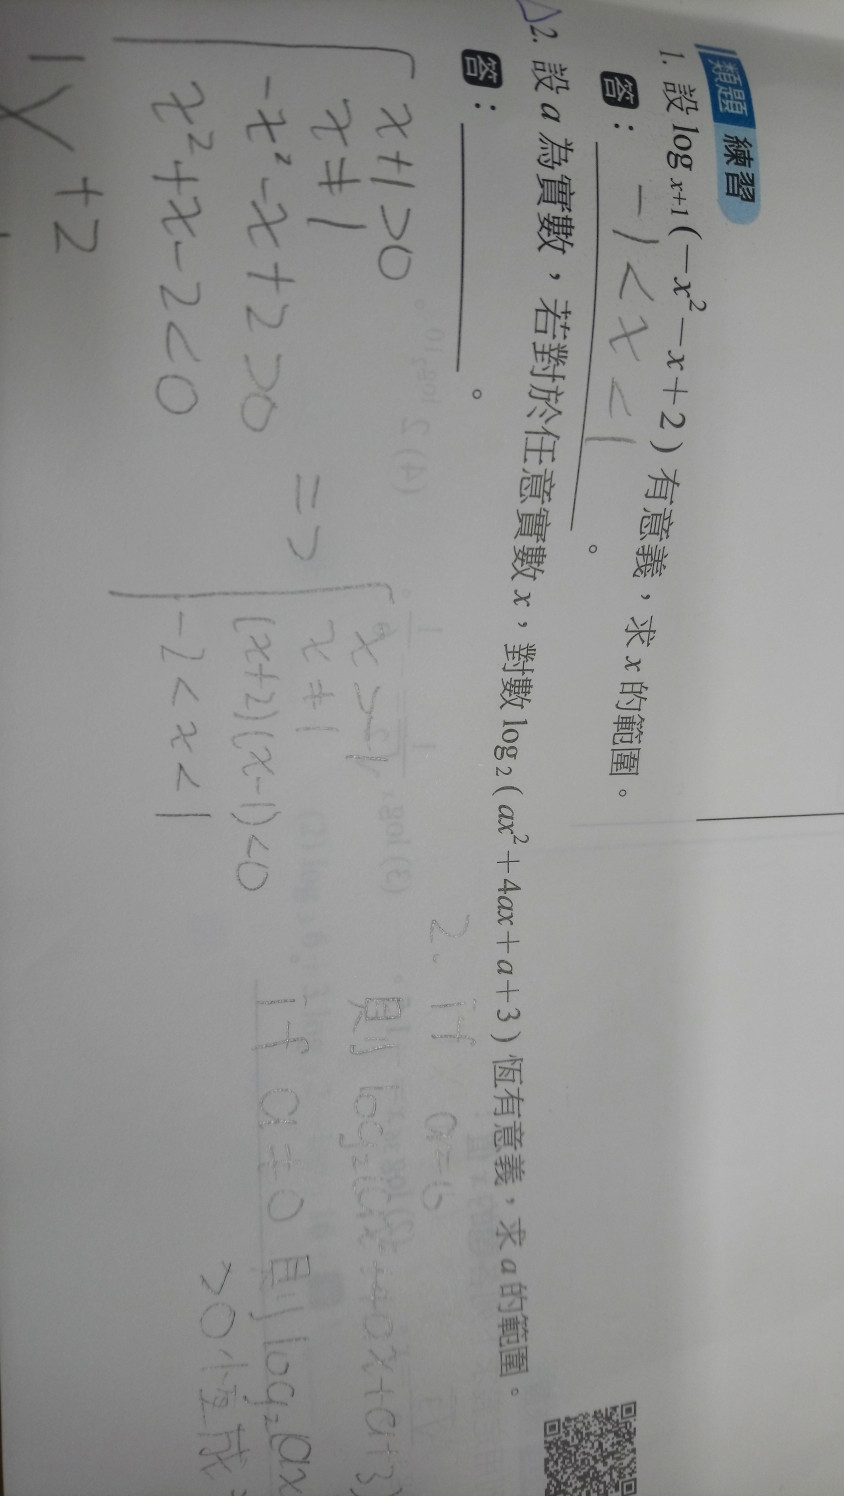 類題 練習
1. 設 log_{x+1}(−x²−x+2) 有意義，求 x 的範圍。
答： −1<x<1 。
2. 設 a 為實數，若對於任意實數 x，對數 log₂(ax²+4ax+a+3) 恆有意義，求 a 的範圍。
答： 。
x+1>0
x≠1
−x²−x+2>0
x²+x−2<0
=>
x>−1
x≠1
(x+2)(x−1)<0
−2<x<1
2. if
則 log₂
if a≠0 則 log₂(ax
>0 恆成
+2